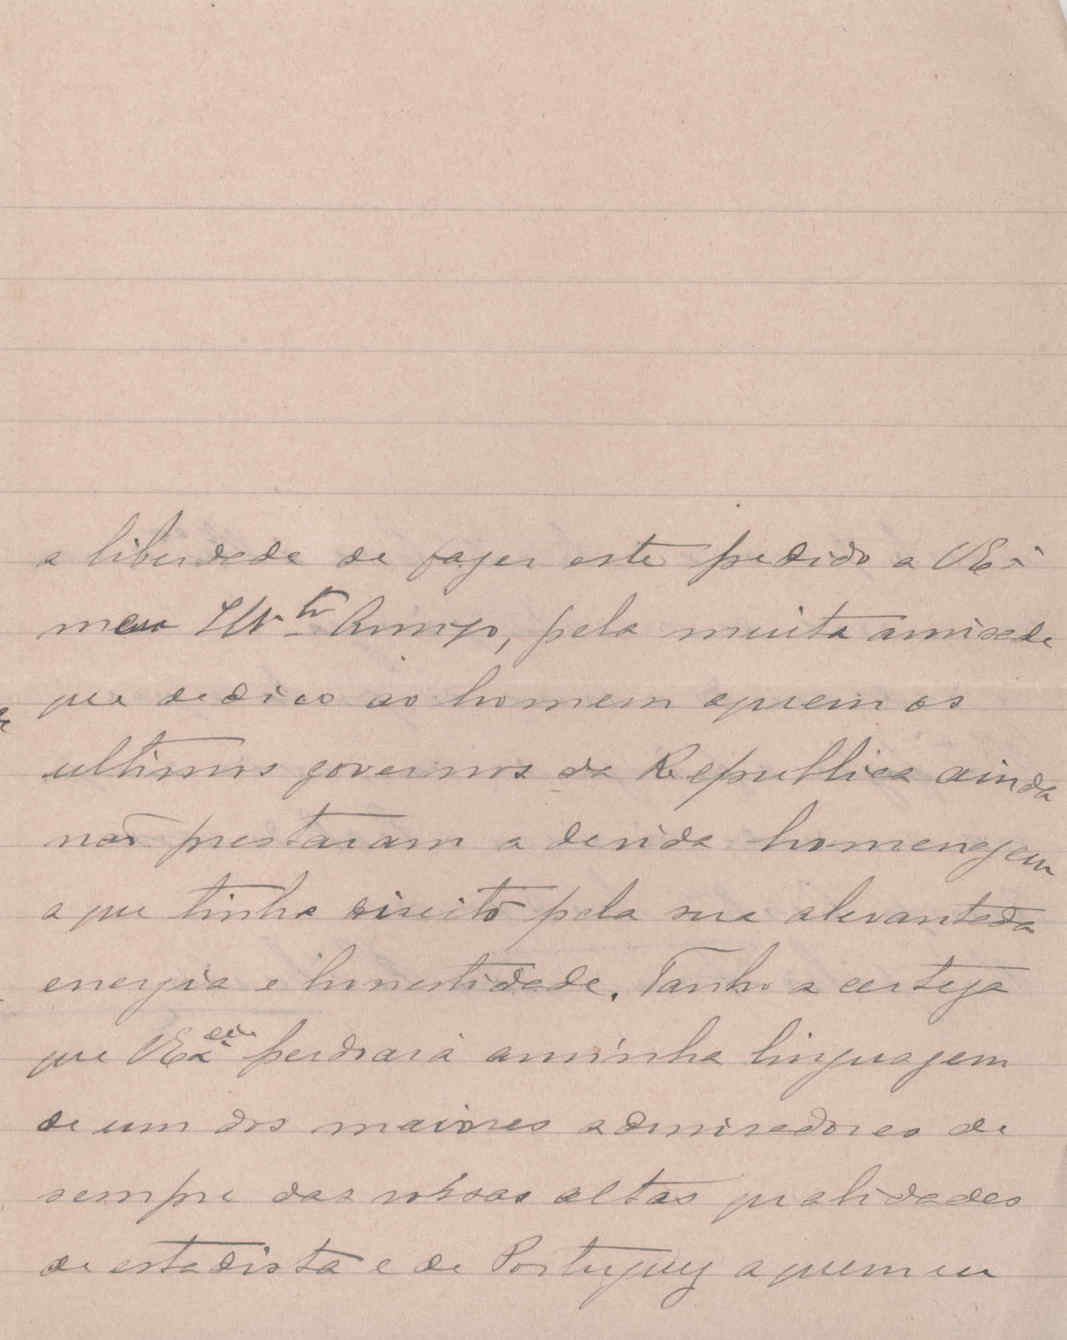 a liberdade de fazer este pedido a VEx.ª
meu Ill.tr Amigo, pela muita amisade
que dedico ao homem aquem os
ultimos governos da Republica ainda
não prestaram a devida homenagem
a que tinha direito pela sua alevantada
energia e honestidade. Tenho a certeza
que VEx.cia perdoará a minha linguagem
de um dos maiores admiradores de
sempre das vossas altas qualidades
de estadista e de Portuguez aquem eu